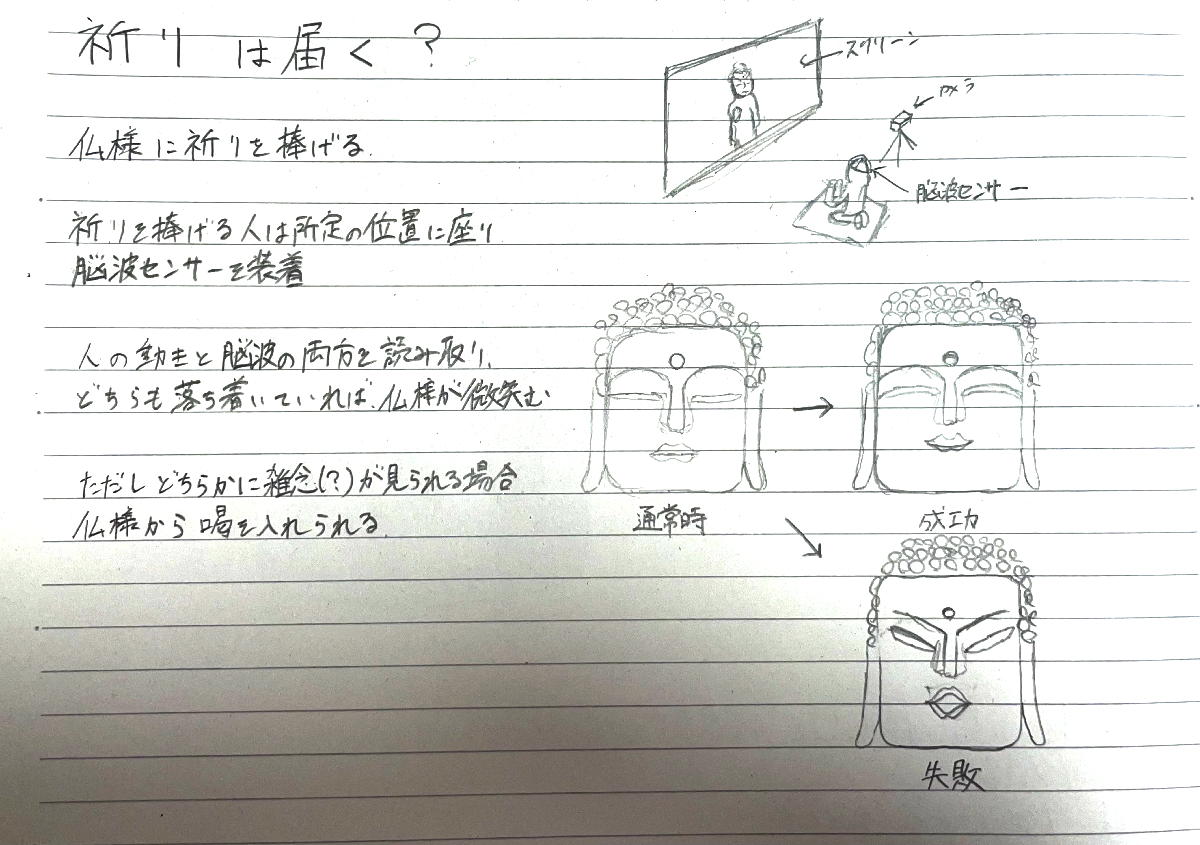 祈りは届く?
スクリーン
カメラ
脳波センサー
仏様に祈りを捧げる.
祈りを捧げる人は所定の位置に座り
脳波センサーを装着
人の動きと脳波の両方を読み取り、
どちらも落ち着いていれば、仏様が微笑む
ただしどちらかに雑念(?)が見られる場合
仏様から喝を入れられる.
通常時
成功
失敗